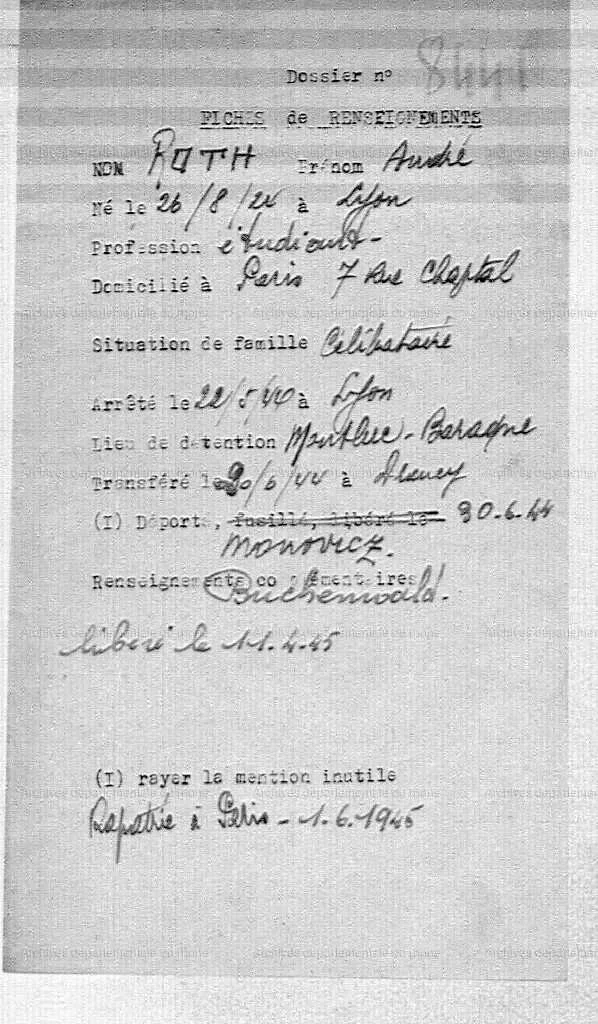 Dossier n° 8441
FICHES de RENSEIGNEMENTS
NOM ROTH Prénom André
Né le 26/8/24 à Lyon
Profession étudiant-
Domicilié à Paris 7 Rue Chaptal
Situation de famille Célibataire
Arrêté le 22/5/44 à Lyon
Lieu de détention Montluc - Baraque
Transféré le 20/6/44 à Drancy
(I) Déporté, fusillé, libéré le 30.6.44
Monovicz.
Renseignements complémentaires
Buchenwald.
libéré le 11.4.45
(I) rayer la mention inutile
Rapatrié à Paris - 1.6.1945